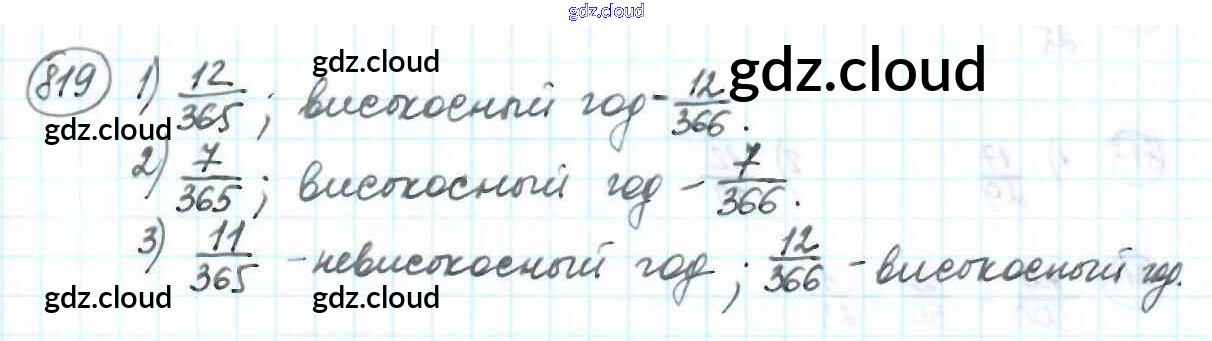 gdz.cloud
819 1) 12/365; високосный год - 12/366.
gdz.cloud gdz.cloud gdz.cloud
2) 7/365; високосный год - 7/366.
3) 11/365 - невисокосный год; 12/366 - високосный год.
gdz.cloud gdz.cloud gdz.cloud